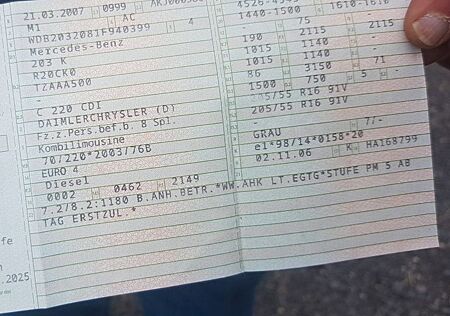 21.03.2007 0999 AKJ000
M1 AC
WDB2032081F940399 4
Mercedes-Benz
203 K
R20CK0
TZAAA500
-
C 220 CDI
DAIMLERCHRYSLER (D)
Fz.z.Pers.bef.b. 8 Spl.
Kombilimousine
70/220*2003/76B
EURO 4
Diesel
0002 0462 2149
7.2/8.2:1180 B.ANH.BETR.*WW.AHK LT.EGTG*STUFE PM 5 AB
TAG ERSTZUL.*
1440-1500 1610-1610
75
190 2115 2115
1015 1140 -
1015 1140 -
86 3150 71
1500 750 5
205/55 R16 91V
205/55 R16 91V
-
GRAU 7/-
e1*98/14*0158*20
02.11.06 K HA168799
.2025